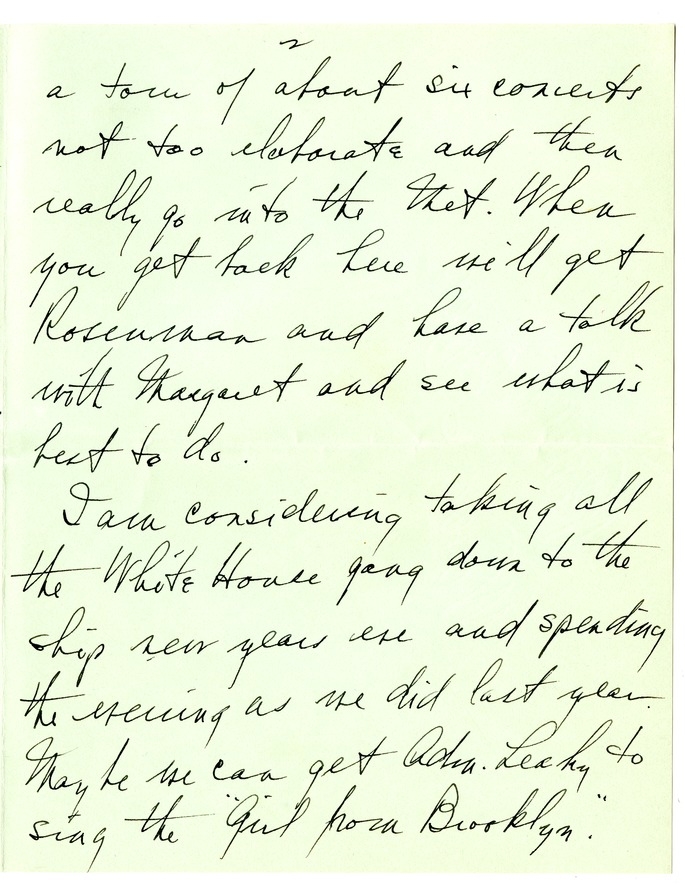 2
a tour of about six concerts
not too elaborate and then
really go into the Met. When
you get back here we'll get
Rosenman and have a talk
with Margaret and see what is
best to do.
I am considering taking all
the White House gang down to the
ship new years eve and spending
the evening as we did last year.
Maybe we can get Adm. Leahy to
sing the "Girl from Brooklyn."